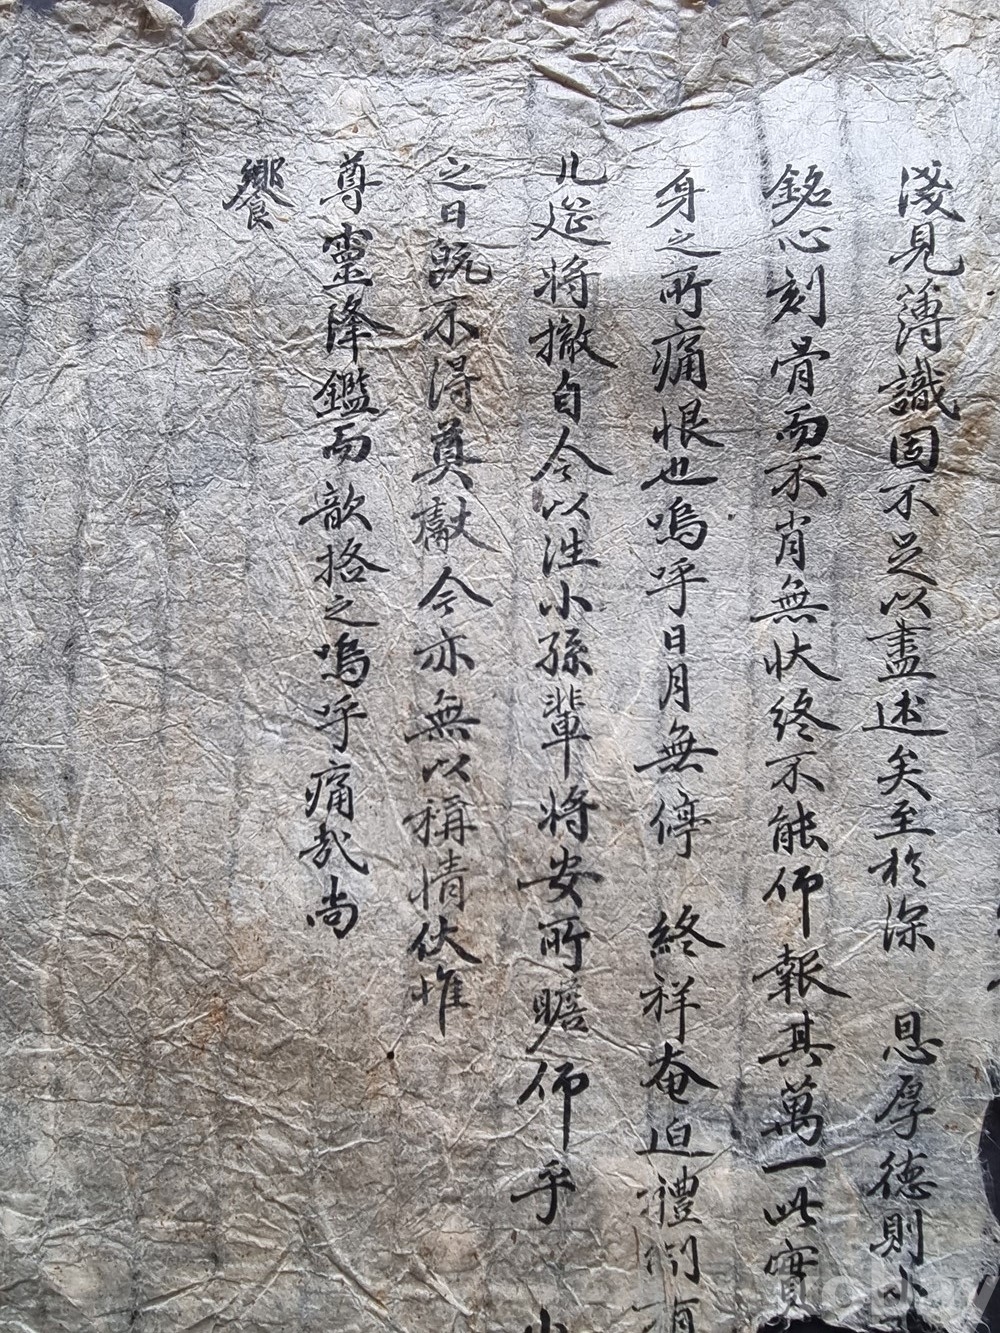 淺見薄識固不足以盡述矣至於深 恩厚德則
銘心刻骨而不肖無狀終不能仰報其萬一此實
身之所痛恨也嗚呼日月無停 終祥奄迫禮制有
几筵將撤自今以往小孫輩將安所瞻仰乎 小
之日旣不得奠獻今亦無以稱情伏惟
尊靈降鑑而歆格之嗚呼痛哉尚
饗